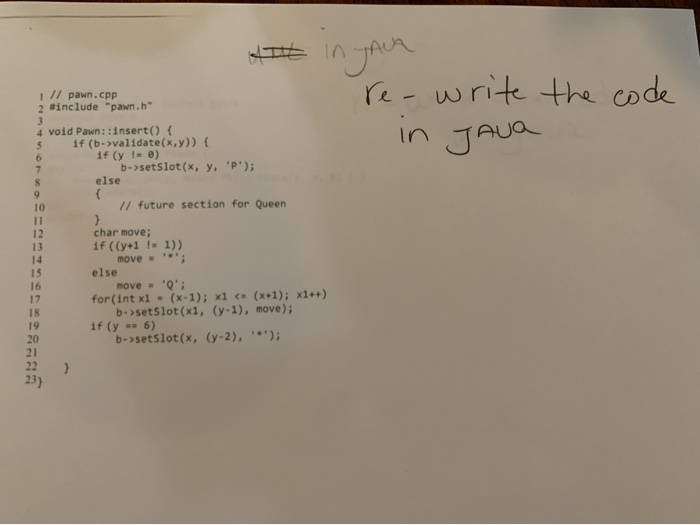 in JAVA
re-write the code
in JAVA
1 // pawn.cpp
2 #include "pawn.h"
3
4 void Pawn::insert() {
5 if (b->validate(x,y)) {
6 if (y != 0)
7 b->setSlot(x, y, 'P');
8 else
9 {
10 // future section for Queen
11 }
12 char move;
13 if ((y+1 != 1))
14 move = '*';
15 else
16 move = 'Q';
17 for(int x1 = (x-1); x1 <= (x+1); x1++)
18 b->setSlot(x1, (y-1), move);
19 if (y == 6)
20 b->setSlot(x, (y-2), '*');
21
22 }
23}